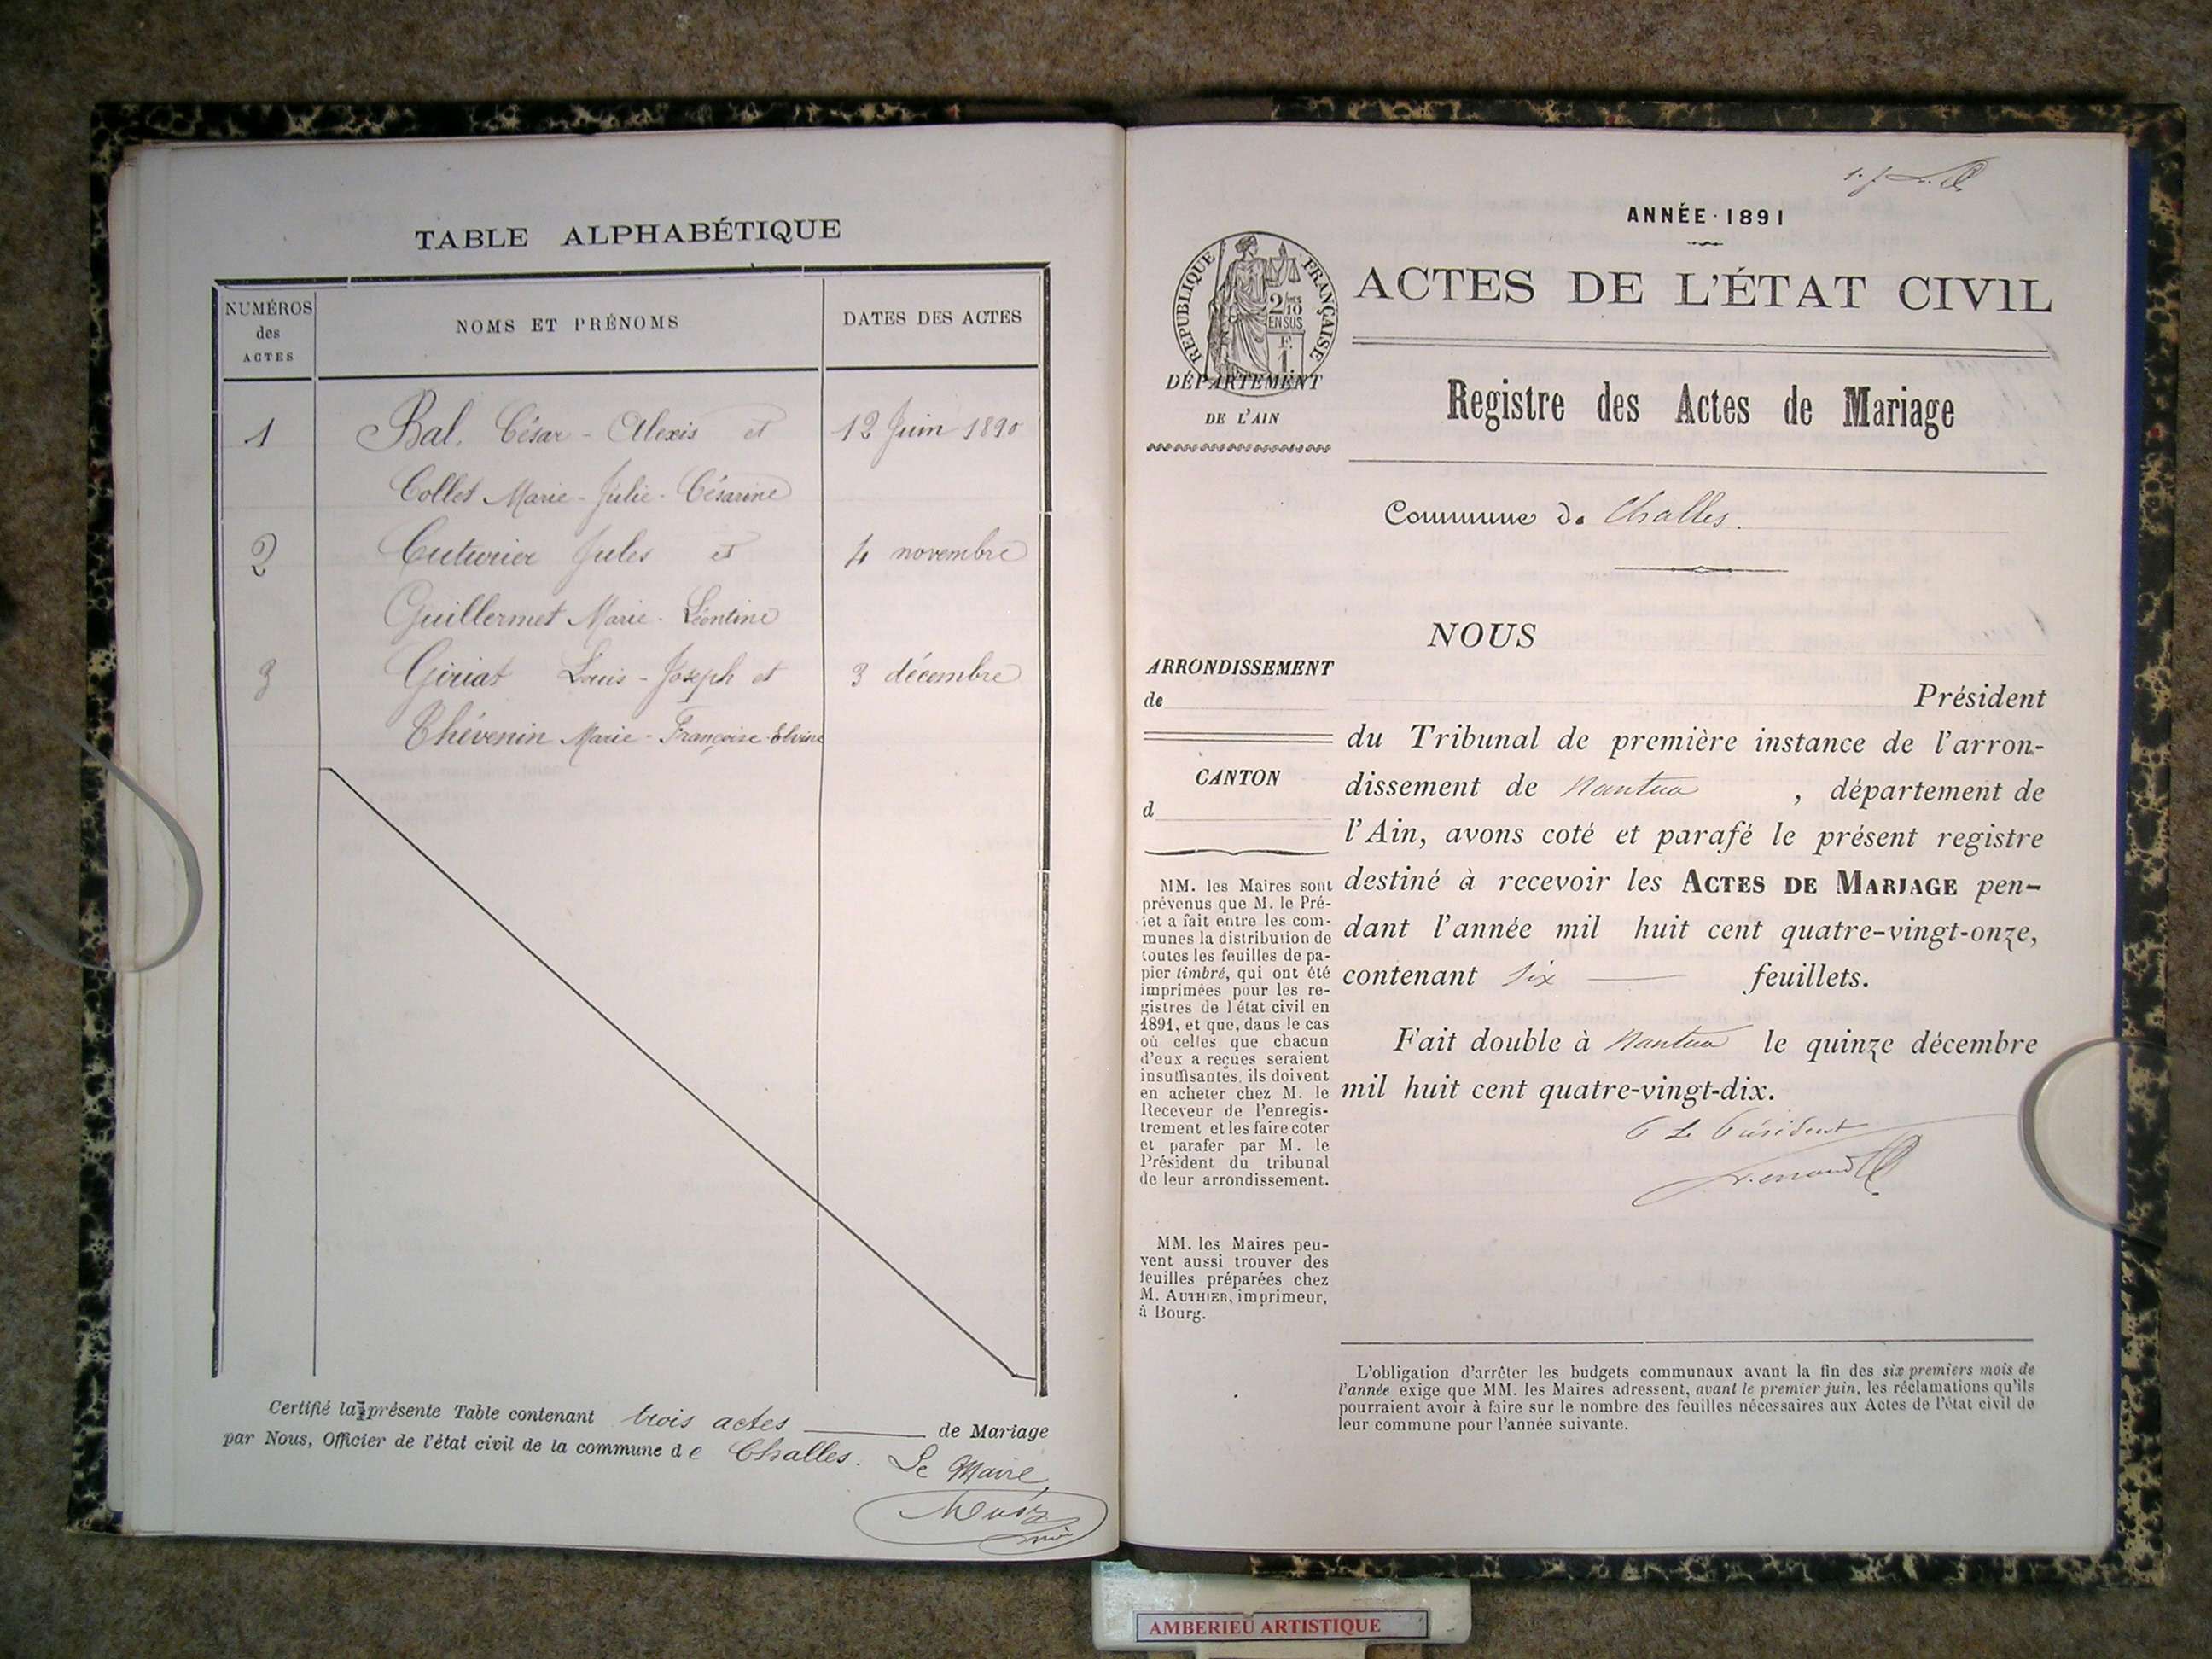 TABLE ALPHABÉTIQUE
NUMÉROS des ACTES
NOMS ET PRÉNOMS
DATES DES ACTES
1 Bal, César-Alexis et 12 Juin 1890
Collet Marie-Julie-Césarine
2 Cuturier Jules et 4 novembre
Guillermet Marie-Léontine
3 Giriat Louis-Joseph et 3 décembre
Thévenin Marie-Françoise-Elvine
Certifié la présente Table contenant trois actes de Mariage
par Nous, Officier de l'état civil de la commune de Challes. Le Maire
ANNÉE 1891
ACTES DE L'ÉTAT CIVIL
RÉPUBLIQUE FRANÇAISE
2/10 EN SUS
F. 1
DÉPARTEMENT
DE L'AIN
Registre des Actes de Mariage
Commune de Challes.
ARRONDISSEMENT
de
CANTON
d
MM. les Maires sont
prévenus que M. le Pré-
fet a fait entre les com-
munes la distribution de
toutes les feuilles de pa-
pier timbré, qui ont été
imprimées pour les re-
gistres de l'état civil en
1891, et que, dans le cas
où celles que chacun
d'eux a reçues seraient
insuffisantes, ils doivent
en acheter chez M. le
Receveur de l'enregis-
trement et les faire coter
et parafer par M. le
Président du tribunal
de leur arrondissement.
MM. les Maires peu-
vent aussi trouver des
feuilles préparées chez
M. AUTHIER, imprimeur,
à Bourg.
NOUS
Président
du Tribunal de première instance de l'arron-
dissement de Nantua , département de
l'Ain, avons coté et parafé le présent registre
destiné à recevoir les ACTES DE MARIAGE pen-
dant l'année mil huit cent quatre-vingt-onze,
contenant six feuillets.
Fait double à Nantua le quinze décembre
mil huit cent quatre-vingt-dix.
Le Président
L'obligation d'arrêter les budgets communaux avant la fin des six premiers mois de
l'année exige que MM. les Maires adressent, avant le premier juin, les réclamations qu'ils
pourraient avoir à faire sur le nombre des feuilles nécessaires aux Actes de l'état civil de
leur commune pour l'année suivante.
AMBERIEU ARTISTIQUE